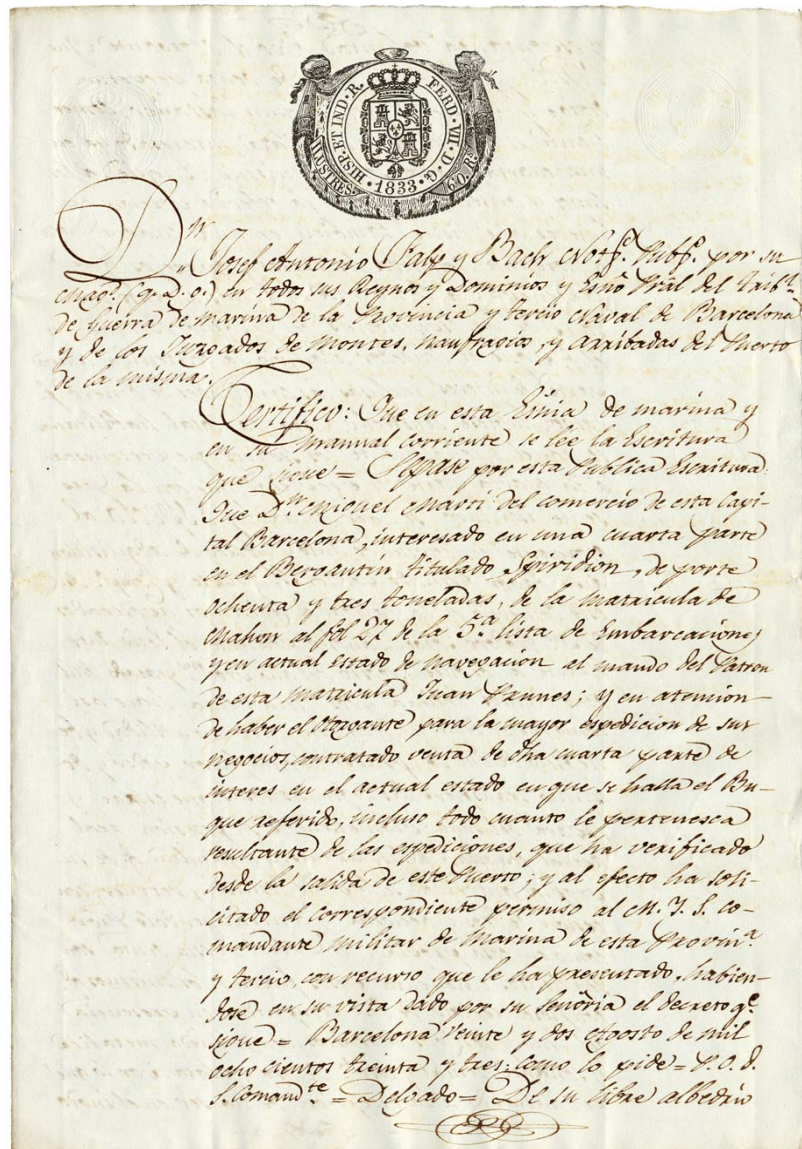 HISP. ET IND. R. FERD. VII. D. G.
ILUSTRES. 1833. 60. Rs.
Dn. Josef Antonio Falp y Bach Notº. Pubº. por su
Magd. (q. D. g.) en todos sus Reynos y Dominios y Esnō Pral del Tribl.
de Guerra de marina de la Provincia y tercio Naval de Barcelona
y de los Juzgados de Montes, naufragios, y Arribadas del Puerto
de la misma.
Certifico: Que en esta Esnia de marina y
en su manual corriente se lee la Escritura
que sigue = Sepase por esta Publica Escritura:
Que Dn. Miguel Marti del comercio de esta Capi-
tal Barcelona, interesado en una cuarta parte
en el Bergantin titulado Spiridion, de porte
ochenta y tres toneladas, de la matricula de
Mahon al fol 27 de la 5.a lista de Embarcaciones
y en actual estado de navegacion al mando del Patron
de esta matricula Juan Prunes; y en atencion
de haber el Otorgante para la mayor espedicion de sus
negocios, contratado venta de dha cuarta parte de
interes en el actual estado en que se halla el Bu-
que referido, incluso todo cuanto le pertenesca
resultante de las espediciones, que ha verificado
desde la salida de este Puerto; y al efecto ha soli-
citado el correspondiente permiso al M. I. S. Co-
mandante militar de Marina de esta Provin.a
y tercio, con recurso que le ha presentado, habien-
dose en su vista dado por su Señoria el decreto qe.
sigue = Barcelona Veinte y dos Agosto de mil
ocho cientos treinta y tres: como lo pide = P. O. D.
S. Comandte = Delgado = De su libre albedrio